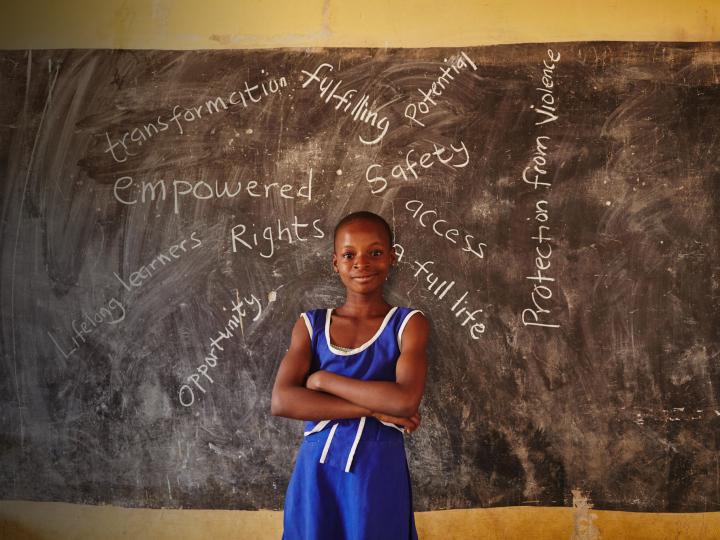 transformation
fulfilling
Potential
Protection from Violence
empowered
Safety
Rights
access
Lifelong learners
a full life
Opportunity